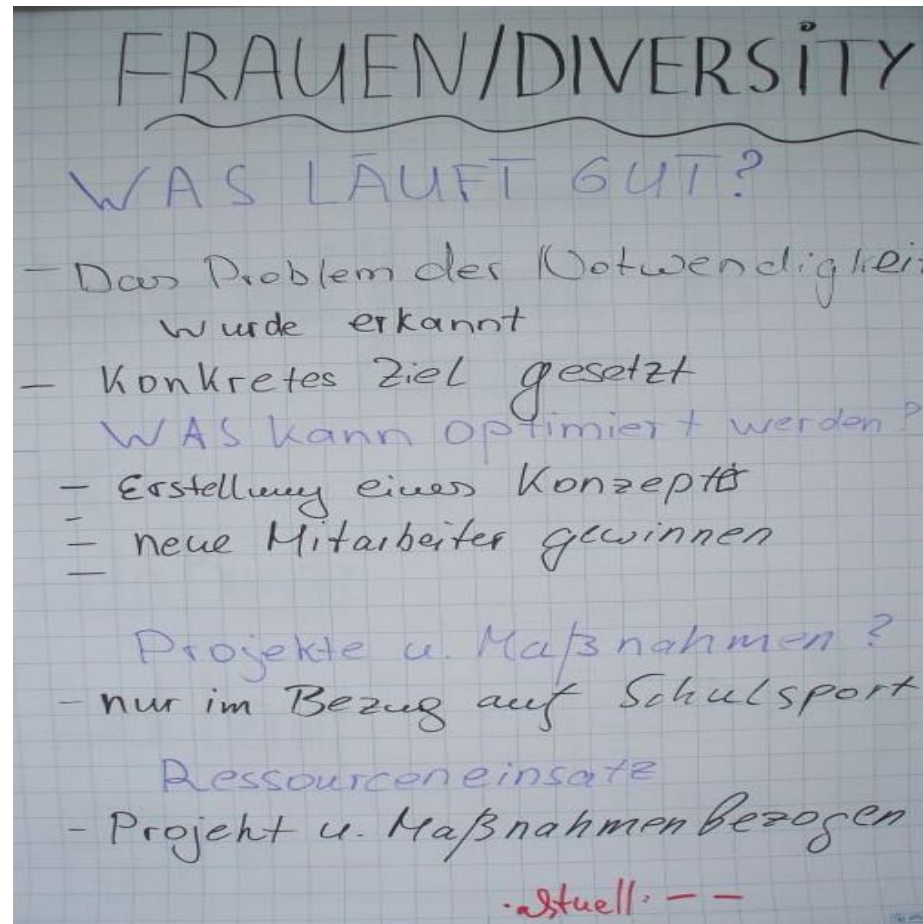 FRAUEN/DIVERSITY
WAS LÄUFT GUT?
- Das Problem der Notwendigkeit
wurde erkannt
- Konkretes Ziel gesetzt
WAS kann optimiert werden?
- Erstellung eines Konzeptes
- neue Mitarbeiter gewinnen
-
Projekte u. Maßnahmen?
- nur im Bezug auf Schulsport
Ressourceneinsatz
- Projekt u. Maßnahmenbezogen
aktuell: - -